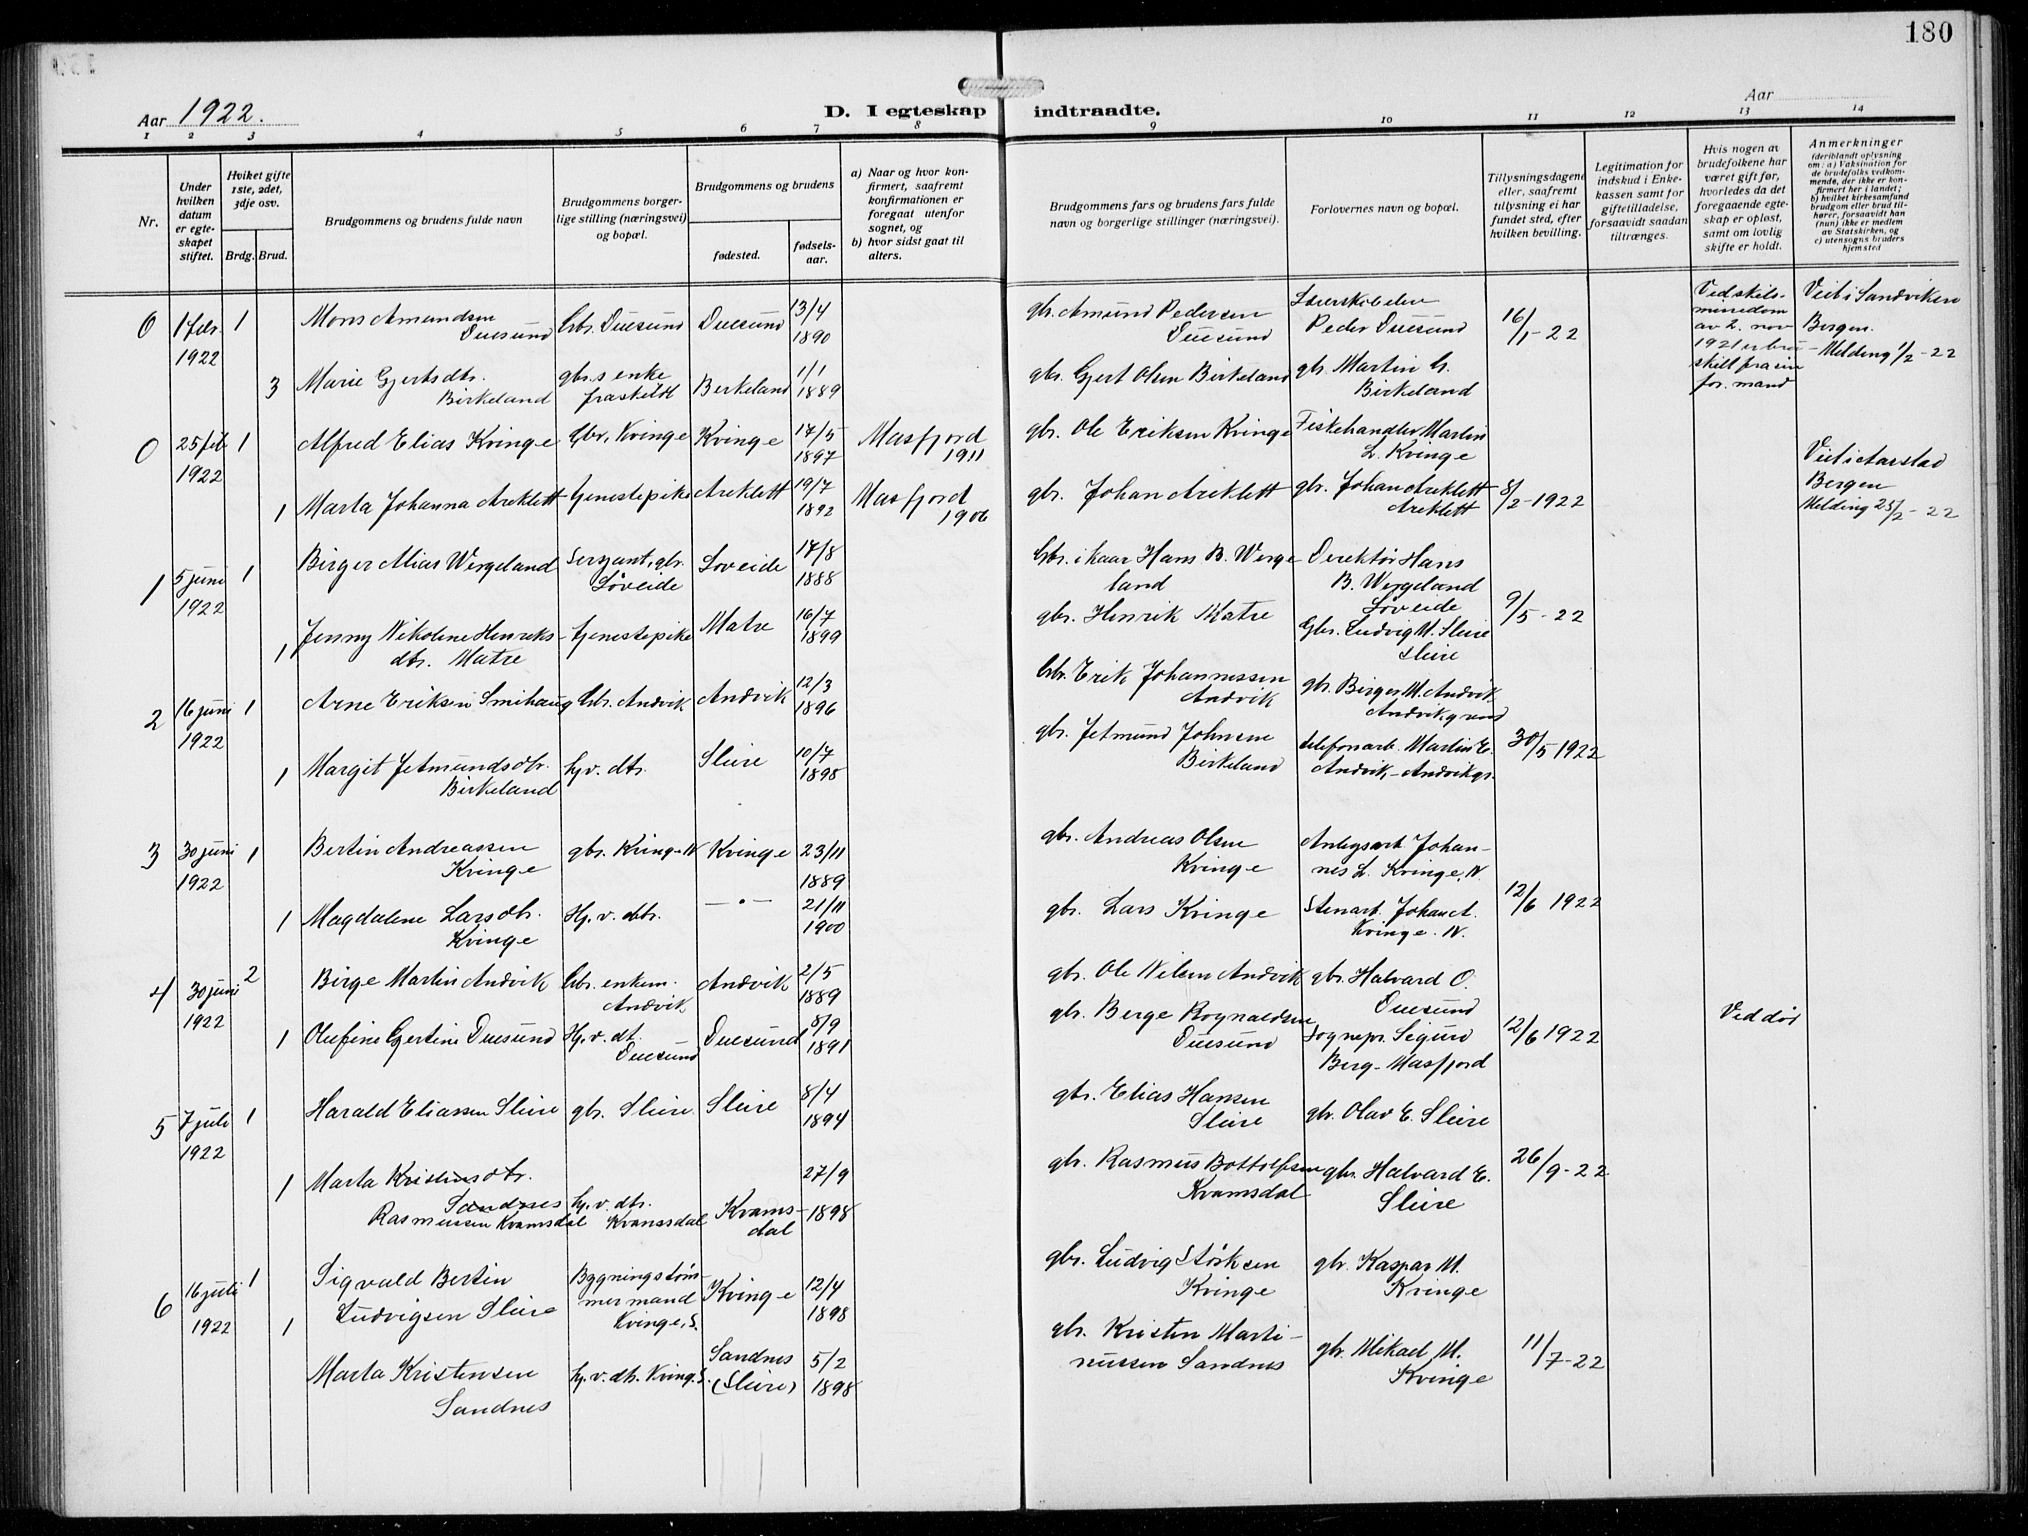 180
Aar 1922.
D. I egteskap indtraadte.
Aar
1 2 3 4 5 6 7 8 9 10 11 12 13 14
Nr.
Under hvilken datum er egteskapet stiftet.
Hviket gifte 1ste, 2det, 3dje osv.
Brdg. Brud.
Brudgommens og brudens fulde navn
Brudgommens borgerlige stilling (næringsvei) og bopæl.
Brudgommens og brudens
fødested.
fødselsaar.
a) Naar og hvor konfirmert, saafremt konfirmationen er foregaat utenfor sognet, og
b) hvor sidst gaat til alters.
Brudgommens fars og brudens fars fulde navn og borgerlige stillinger (næringsvei).
Forlovernes navn og bopæl.
Tillysningsdagene eller, saafremt tillysning ei har fundet sted, efter hvilken bevilling.
Legitimation for indskud i Enkekassen samt for giftetilladelse, forsaavidt saadan tiltrænges.
Hvis nogen av brudefolkene har været gift før, hvorledes da det foregaaende egteskap er opløst, samt om lovlig skifte er holdt.
Anmerkninger
(deriblandt oplysning om: a) Vaksination for de brudefolks vedkommende, der ikke er konfirmert her i landet; b) hvilket kirkesamfund brudgom eller brud tilhører, forsaavidt han (hun) ikke er medlem av Statskirken, og c) utensogns bruders hjemsted
0 1 febr. 1922 1 Mons Amundsen Duesund Gbr. Duesund Duesund 13/4 1890
gbr. Amund Pedersen Duesund
Peder Duesund
16/1-22
Ved skilsmissedom av 2. nov 1921 er bru skilt fra sin for. mand
Viet i Sandviken Bergen. - Melding 1/2-22
3 Marie Gjertsdtr. Birkeland gbr.s enke fraskilt Birkeland 1/1 1889
gbr. Gjert Olsen Birkeland
gbr. Martin G. Birkeland
0 25 feb 1922 1 Alfred Elias Kvinge Gbr. Kvinge Kvinge 17/5 1897 Masfjord 1911
gbr. Ole Eriksen Kvinge
Fiskehandler Martin L. Kvinge
Viet i Aarstad Bergen Melding 25/2-22
1 Marta Johanna Areklett tjenestepike Areklett 19/7 1892 Masfjord 1906
gbr. Johan Areklett
gbr. Johan Areklett Areklett
8/2-1922
1 5 juni 1922 1 Birger Alias Wergeland Sersjant, gbr. Løveide Løveide 17/8 1888
Gbr. i kaar Hans B. Wergeland
Direktør Hans B. Wergeland Løveide
1 Jenny Nikoline Henriksdtr. Matre tjenestepike Matre 16/7 1899
gbr. Henrik Matre
Gbr. Ludvig M. Sleire Sleire
9/5-22
2 16 juni 1922 1 Arne Eriksen Smihaug Gbr. Andvik Andvik 12/3 1896
Gbr. Erik Johannessen Andvik
gbr. Birger M. Andvik Andvikgrend
1 Margit Jetmundsdtr. Birkeland hj.v. dtr. Sleire 10/7 1898
gbr. Jetmund Johnsen Birkeland
telefonarb. Martin E. Andvik - Andvikgr.
30/5 1922
3 30 juni 1922 1 Bertin Andreassen Kvinge gbr. Kvinge N Kvinge 23/11 1889
gbr. Andreas Olsen Kvinge
Anlegsarb Johannes L. Kvinge, N.
1 Magdalene Larsdtr. Kvinge Hj. v. dtr. — " — 21/11 1900
gbr. Lars Kvinge
Stenarb. Johan A. Kvinge. N.
12/6 1922
4 30 juni 1922 2 Birge Martin Andvik Gbr. enkem. Andvik Andvik 2/5 1889
gbr. Ole Nilsen Andvik
gbr. Halvard O. Duesund
Ved død
1 Olufine Gjertine Duesund Hj. v. dt. Duesund Duesund 8/9 1891
gbr. Berge Rognaldsen Duesund
Sognepr. Sigurd Berg - Masfjord
12/6 1922
5 7 juli 1922 1 Harald Eliassen Sleire gbr. Sleire Sleire 8/4 1894
gbr. Elias Hansen Sleire
gbr. Olav E. Sleire
1 Marta Kristensdtr. Sandnes Rasmussen Kvamsdal hj. v. dtr. Kvamsdal Kvamsdal 27/9 1898
gbr. Rasmus Bottolfsen Kvamsdal
gbr. Halvard E. Sleire
26/9-22
6 16 juli 1922 1 Sigvald Bertin Ludvigsen Sleire Bygningstømmermand Kvinge, S. Kvinge 12/4 1898
gbr. Ludvig Størksen Kvinge
gbr. Kaspar M. Kvinge
1 Marta Kristensen Sandnes hj. v. dtr. Kvinge S. Sandnes (Sleire) 5/2 1898
gbr. Kristen Martinussen Sandnes
gbr. Mikael M. Kvinge
11/7-22